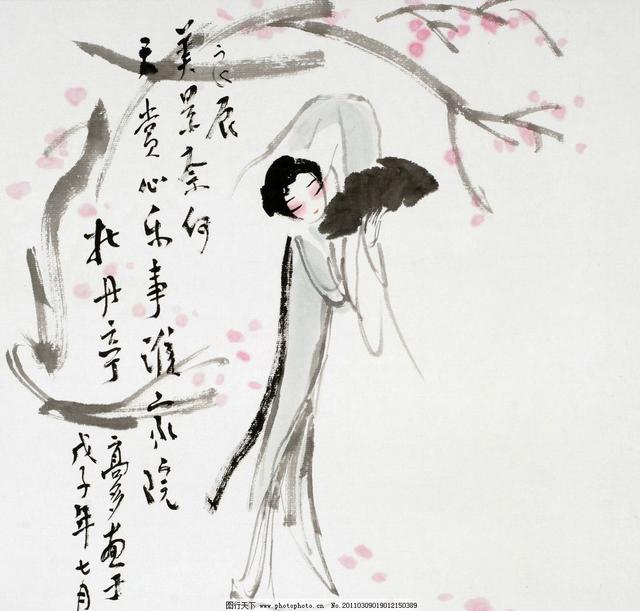 良辰
美景奈何
天赏心乐事谁家院
牡丹亭
高多画于
戊子年七月
图行天下 www.photophoto.cn No.20110309019012150389